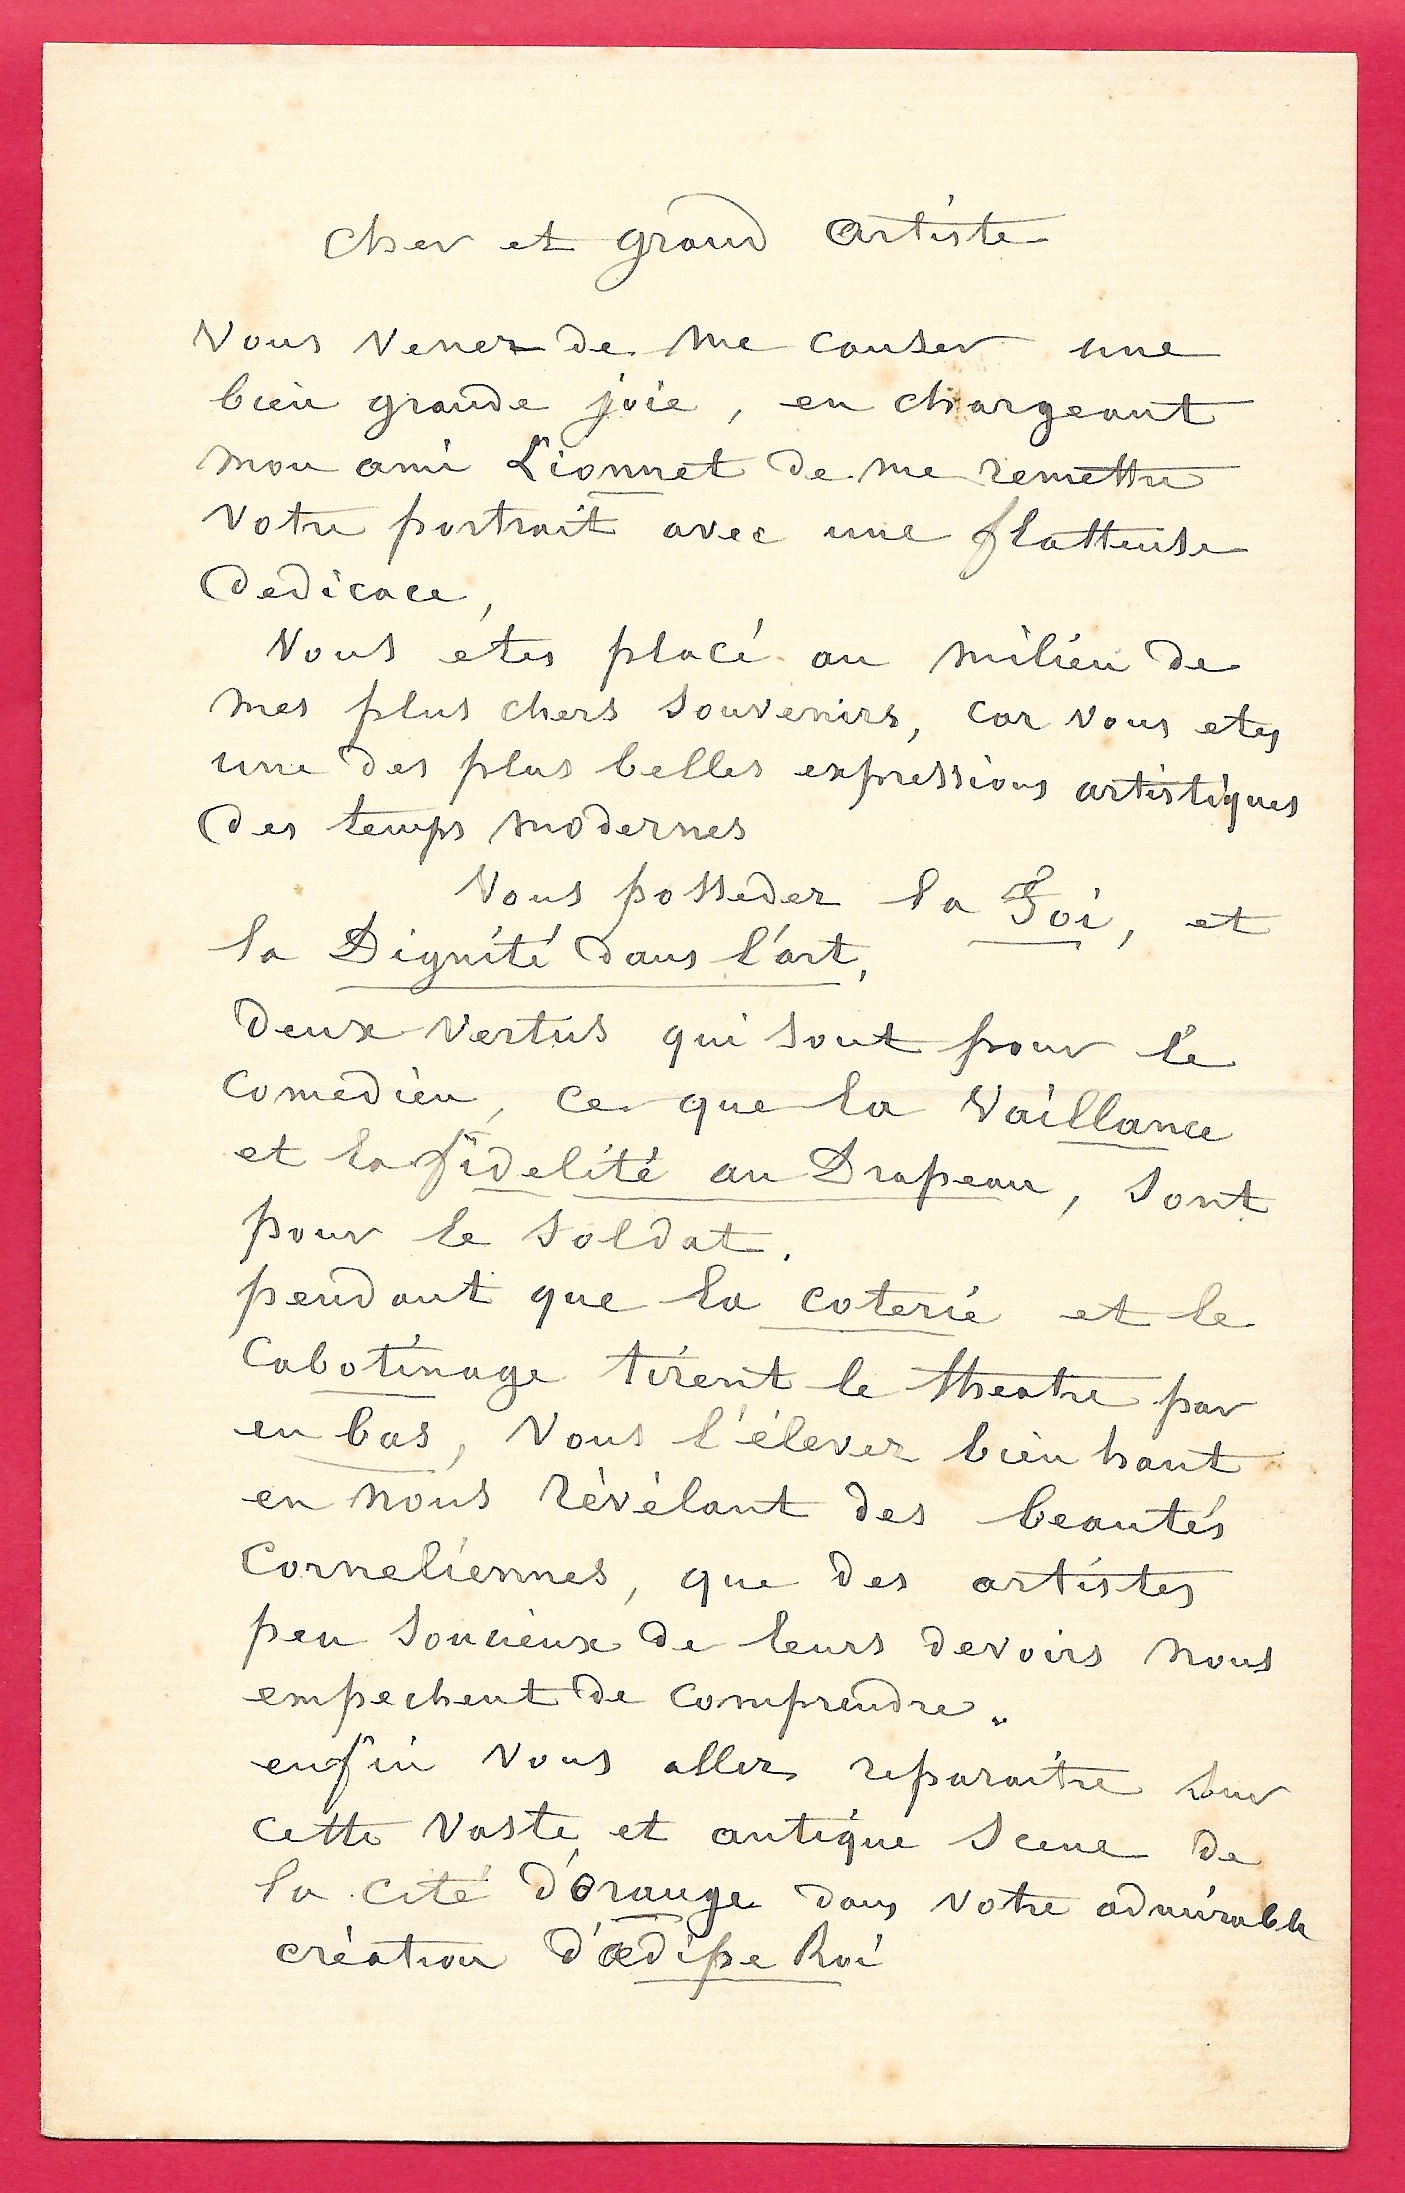 Cher et grand Artiste
Vous venez de me causer une
bien grande joie, en chargeant
mon ami Lionnet de me remettre
votre portrait avec une flatteuse
dedicace,
Vous étes placé au milieu de
mes plus chers souvenirs, car vous etes
une des plus belles expressions artistiques
des temps modernes
Vous posseder la Foi, et
la Dignité dans l'art,
deux vertus qui sont pour le
comedien, ce que la Vaillance
et la fidelité au Drapeau, sont
pour le soldat.
pendant que la coterie et le
cabotinage tirent le theatre par
en bas, vous l'élever bien haut
en nous révélant des beautés
Corneliennes, que des artistes
peu soucieux de leurs devoirs nous
empechent de comprendre.
enfin vous allez reparaitre sur
cette vaste et antique scene de
la cité d'Orange dans votre admirable
création d'œdipe Roi